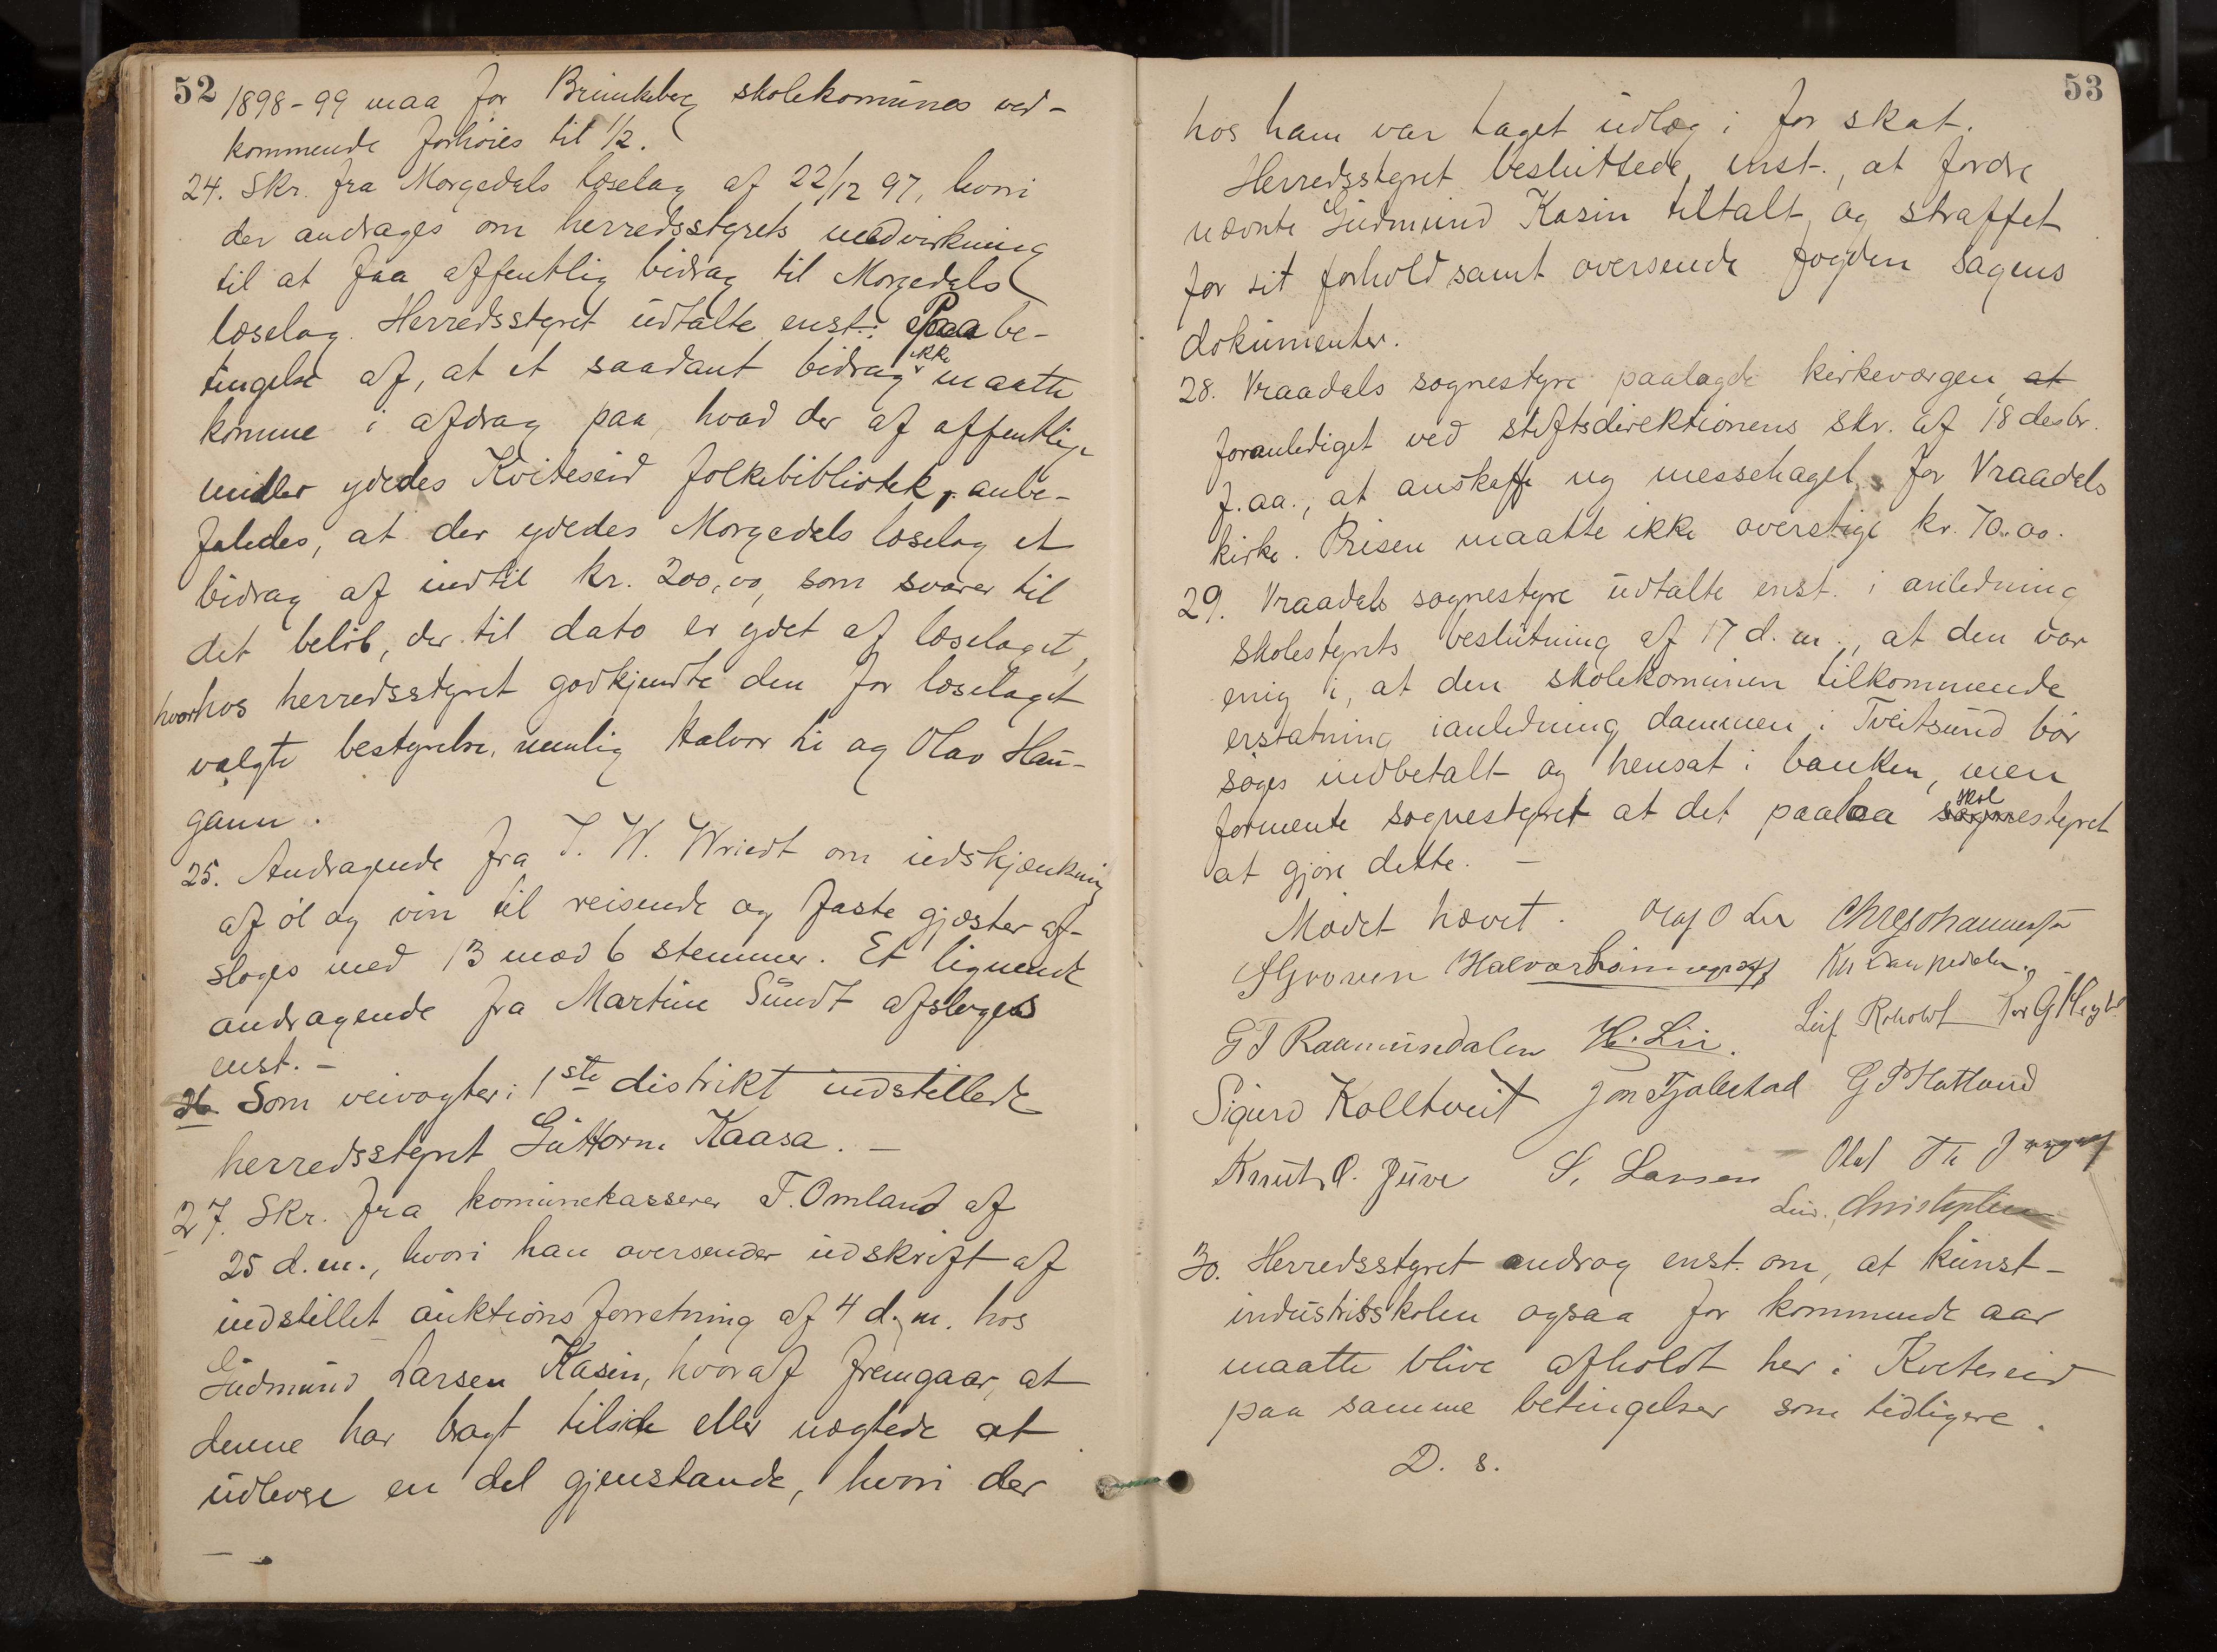 52
1898-99 maa for Brunkeberg skolekomunes ved-
kommende forhøies til 1/2.
24. Skr. fra Morgedals læselag af 22/12 97, hvori
der andrages om herredsstyrets medvirkning
til at faa offentlig bidrag til Morgedals
læselag. Herredsstyret udtalte enst.: Paa be-
tingelse af, at et saadant bidrag ikke maatte
komme i afdrag paa, hvad der af offentlige
midler ydedes Kviteseid folkebibliotek, anbe-
faledes, at der ydedes Morgedals læselag et
bidrag af indtil kr. 200,00, som svarer til
det beløb, der til dato er ydet af læselaget,
hvorhos herredsstyret godkjendte den for læselaget
valgte bestyrelse, nemlig Halvor Li og Olav Hau-
gann.
25. Andragende fra T. W. Wriedt om udskjænkning
af øl og vin til reisende og faste gjæster af-
sloges med 13 mod 6 stemmer. Et lignende
andragende fra Martin Sundt afsloges
enst. -
26 Som veivogter i 1ste distrikt indstillede
herredsstyret Guttorm Kaasa. -
27. Skr. fra komunekasserer T. Omland af
25 d.m., hvori han oversender udskrift af
indstillet auktionsforretning af 4 d. m. hos
Gudmund Larsen Kasin, hvoraf fremgaar, at
denne har bragt tilside eller nægtede at
udlevere en del gjenstande, hvori der
53
hos ham var taget udlæg i for skat.
Herredsstyret besluttede enst., at fordre
nævnte Gudmund Kasin tiltalt og straffet
for sit forhold samt oversende fogden sagens
dokumenter.
28. Vraadals sognestyre paalagde kirkeværgen, at
foranlediget ved stiftsdirektionens skr. af 18 desbr.
f.aa., at anskaffe ny messehagel for Vraadals
kirke. Prisen maatte ikke overstige kr. 70.00.
29. Vraadals sognestyre udtalte enst. i anledning
skolestyrets beslutning af 17 d. m., at den var
enig i, at den skolekomunen tilkommende
erstatning ianledning dammen i Tveitsund bør
søges indbetalt og hensat i banken, men
formente sognestyret at det paalaa skolestyret
at gjøre dette. -
Mødet hævet. Olaf O Lie Chr Johannessen
Halvor
G T Raamundalen H. Lii. Leif Roholdt Tor G
Sigurd Kolltveit Jon Fjallestad G P Hatland
Knut O. Juve S. Larsen Olaf Th
Christophersen
30. Herredsstyret androg enst. om, at kunst-
industriskolen ogsaa for kommende aar
maatte blive afholdt her i Kviteseid
paa samme betingelser som tidligere.
D. s.